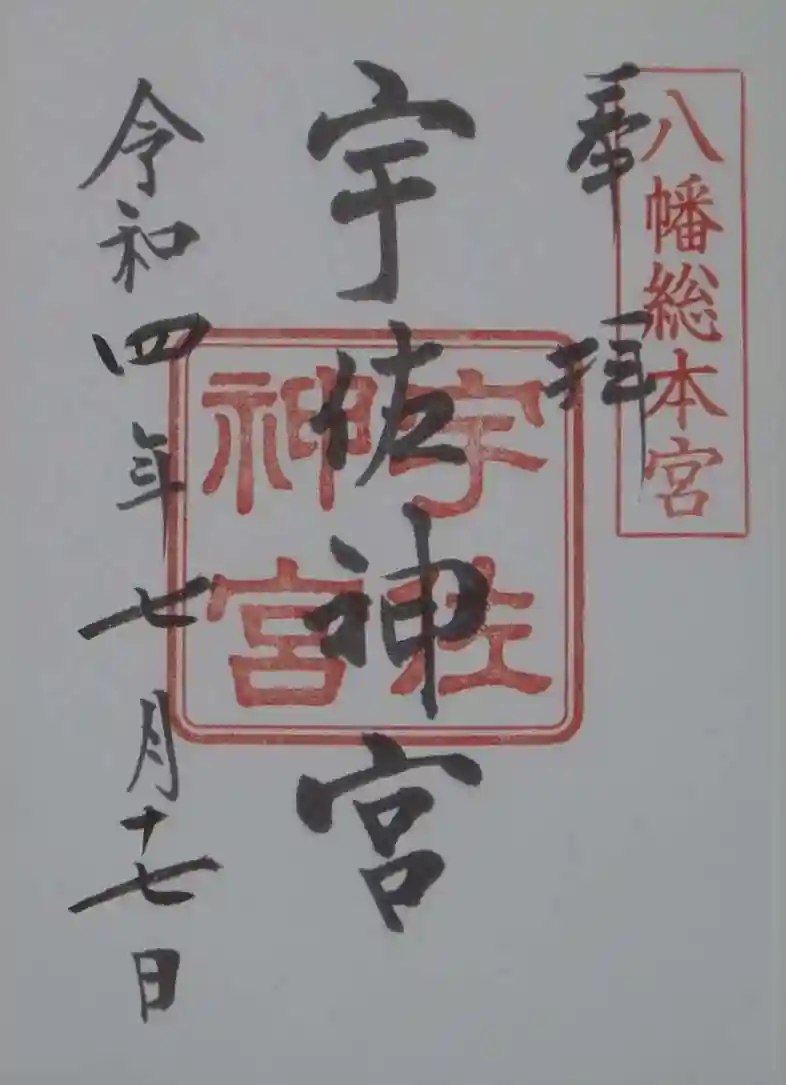 八幡総本宮
奉拝
宇佐神宮
宇佐神宮
令和四年七月十七日